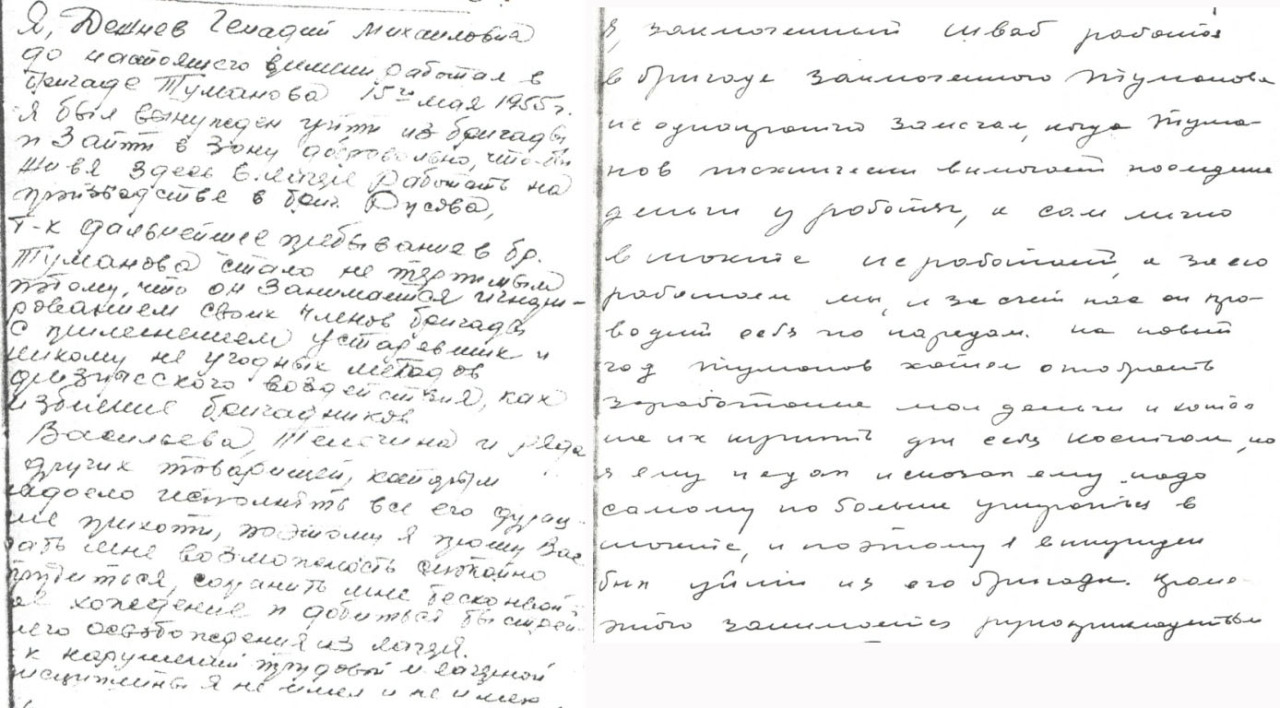 Я, Дежнев Генадий Михаиловив
до настоящего времени работал в
бригаде Туманова 15го мая 1955 г.
Я был вынужден уйти из бригады
и зайти в зону добровольно, что-бы
живя здесь в лагере работать на
производстве в бриг. Русява,
т-к дальнейшее пребывание в бр.
Туманова стало не терпимым
потому, что он занимается
своих членов бригады
с применением устаревших и
никому не угодных методов
физического воздействия, как
избиение бригадников
Васильева, и ряда
других товарищей, которым
надоело исполнять все его дурац-
кие прихоти, поэтому я прошу Вас
дать мне возможность спокойно
трудиться, сохранить мне бесконвой-
ое хождение и добиться быстрей-
шего освобождения из лагеря.
к нарушений трудовой и лагерной
дисциплины я не имел и не имею
Я, заключенный Шваб работая
в бригаде заключенного Туманова
неоднократно замечал, когда Тума-
нов психически вымогает последние
деньги у работяг, а сам лично
в шахте не работает, а за его
работаем мы, и за счет нас он про-
водит себя по нарядам. на новый
год Туманов хотел отобрать
заработаные мои деньги и
на их купить для себя костюм, но
я ему не дал и сказал ему надо
самому по больше упираться в
шахте, и поэтому я вынужден
был уйти из его бригады. кроме
этого занимается рукоприкладством